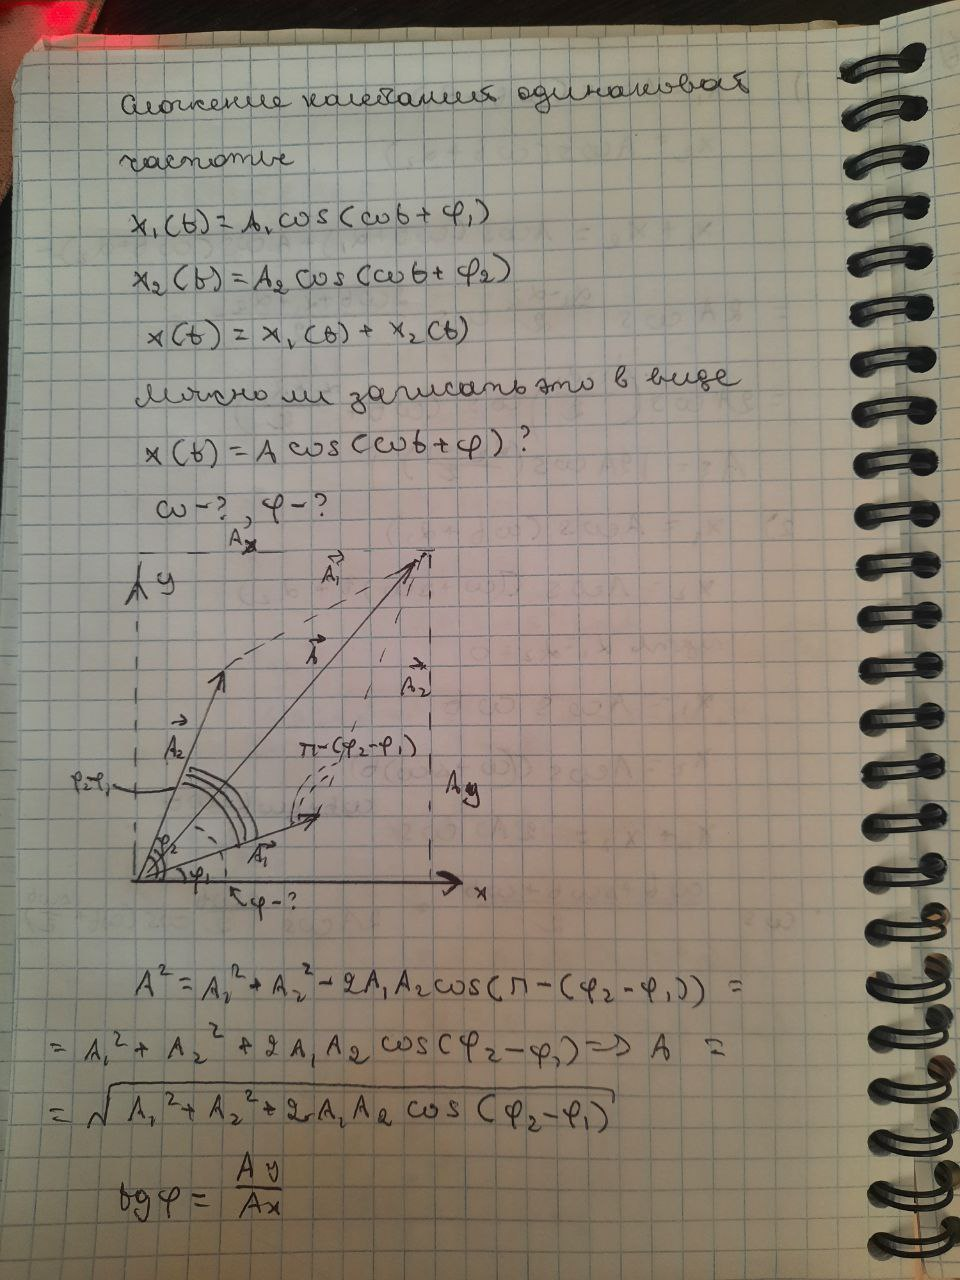 Сложение колебаний одинаковой
частоты
x₁(t) = A₁ cos(ωt + φ₁)
x₂(t) = A₂ cos(ωt + φ₂)
x(t) = x₁(t) + x₂(t)
Можно ли записать это в виде
x(t) = A cos(ωt + φ)?
ω - ?, φ - ?
Aₓ
y
A⃗₁
A⃗
A⃗₂
A⃗₂
π-(φ₂-φ₁)
φ₂-φ₁
Ay
φ₂
A⃗₁
φ₁
x
φ - ?
A² = A₁² + A₂² - 2A₁A₂cos(π - (φ₂ - φ₁)) =
= A₁² + A₂² + 2A₁A₂ cos(φ₂ - φ₁) => A =
= √(A₁² + A₂² + 2A₁A₂ cos(φ₂ - φ₁))
tg φ = Ay/Ax